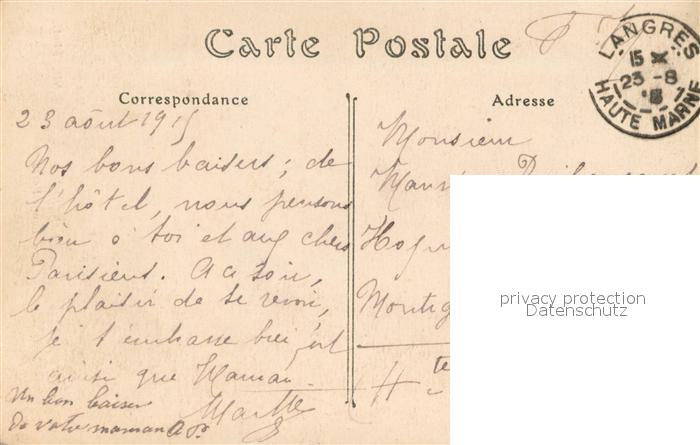 Carte Postale
Correspondance
23 août 1915
Nos bons baisers ; de
l'hôtel, nous pensons
bien à toi et aux chers
Parisiens. A ce soir,
le plaisir de te revoir,
je t'embrasse bien fort
ainsi que Maman
Marthe
Un bon baiser
de votre maman
Adresse
Monsieur
H te
LANGRES
15
23 -8
HAUTE MARNE
privacy protection
Datenschutz